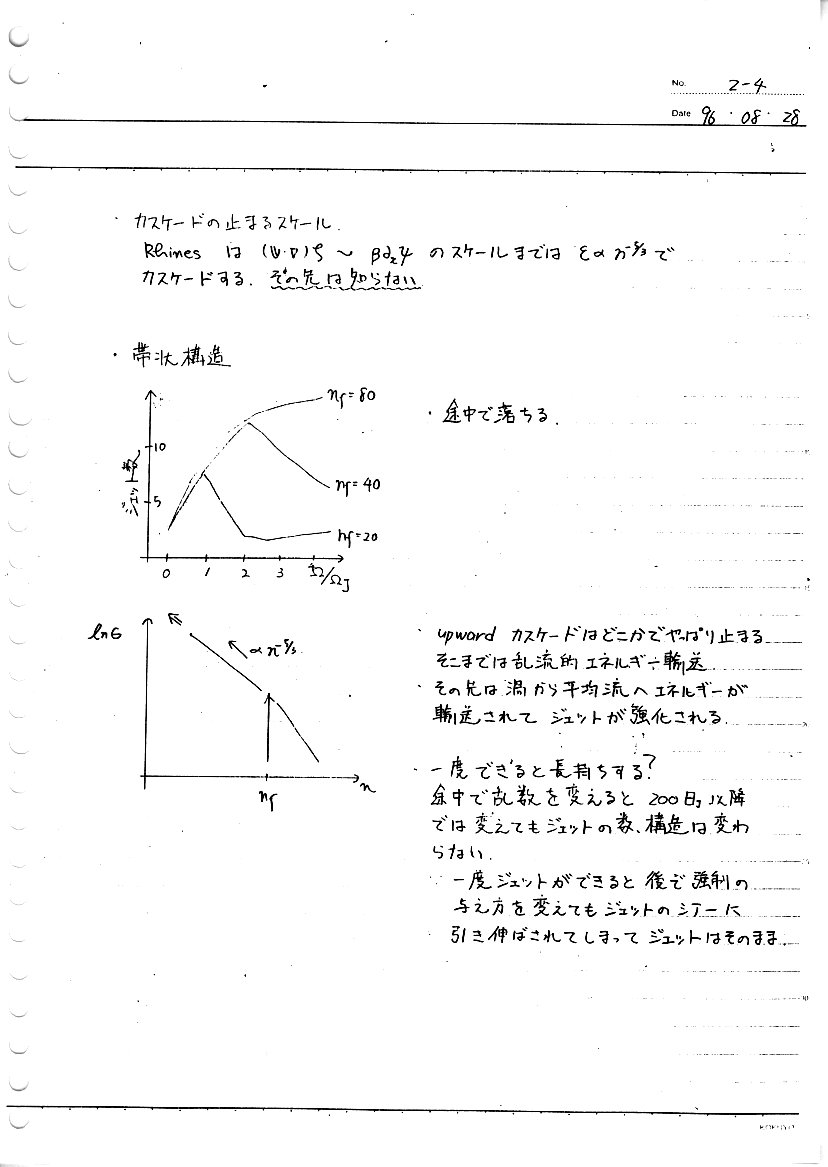 No. 2-4
Date 96 ・ 08 ・ 28
・ カスケードの止まるスケール.
Rhines は (𝐯・∇)ζ ～ β∂xψ のスケールまでは ε∝ n^-5/3 で
カスケードする. その先は知らない
・ 帯状構造
ジェット数
10
5
nf=80
nf=40
nf=20
0 1 2 3 4
Ω/ΩJ
・ 途中で落ちる.
lnε
∝ n^-5/3
nf
n
・ upward カスケードはどこかでやっぱり止まる
そこまでは乱流的エネルギー輸送
・ その先は渦から平均流へエネルギーが
輸送されて ジェットが強化される.
・ 一度できると長持ちする?
途中で乱数を変えると 200日J以降
では変えてもジェットの数、構造は変わ
らない.
・ 一度ジェットができると後で強制の
与え方を変えてもジェットのシアーに
引き伸ばされてしまって ジェットはそのまま.
KOKUYO